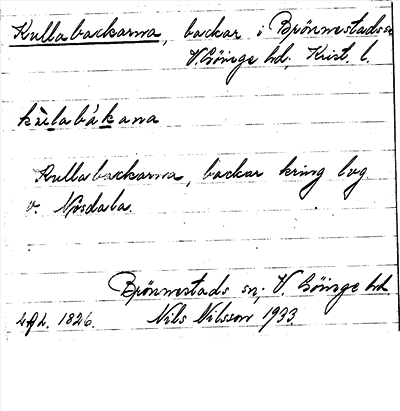 Kullabackarna, backar i Brönnestads sn
V. Göinge hd; Krist. l.
kùlabákana
Kullabackarna, backar kring lvg
v. Nosdala.
Brönnestads sn; V. Göinge hd.
1826. Nils Nilsson 1933.